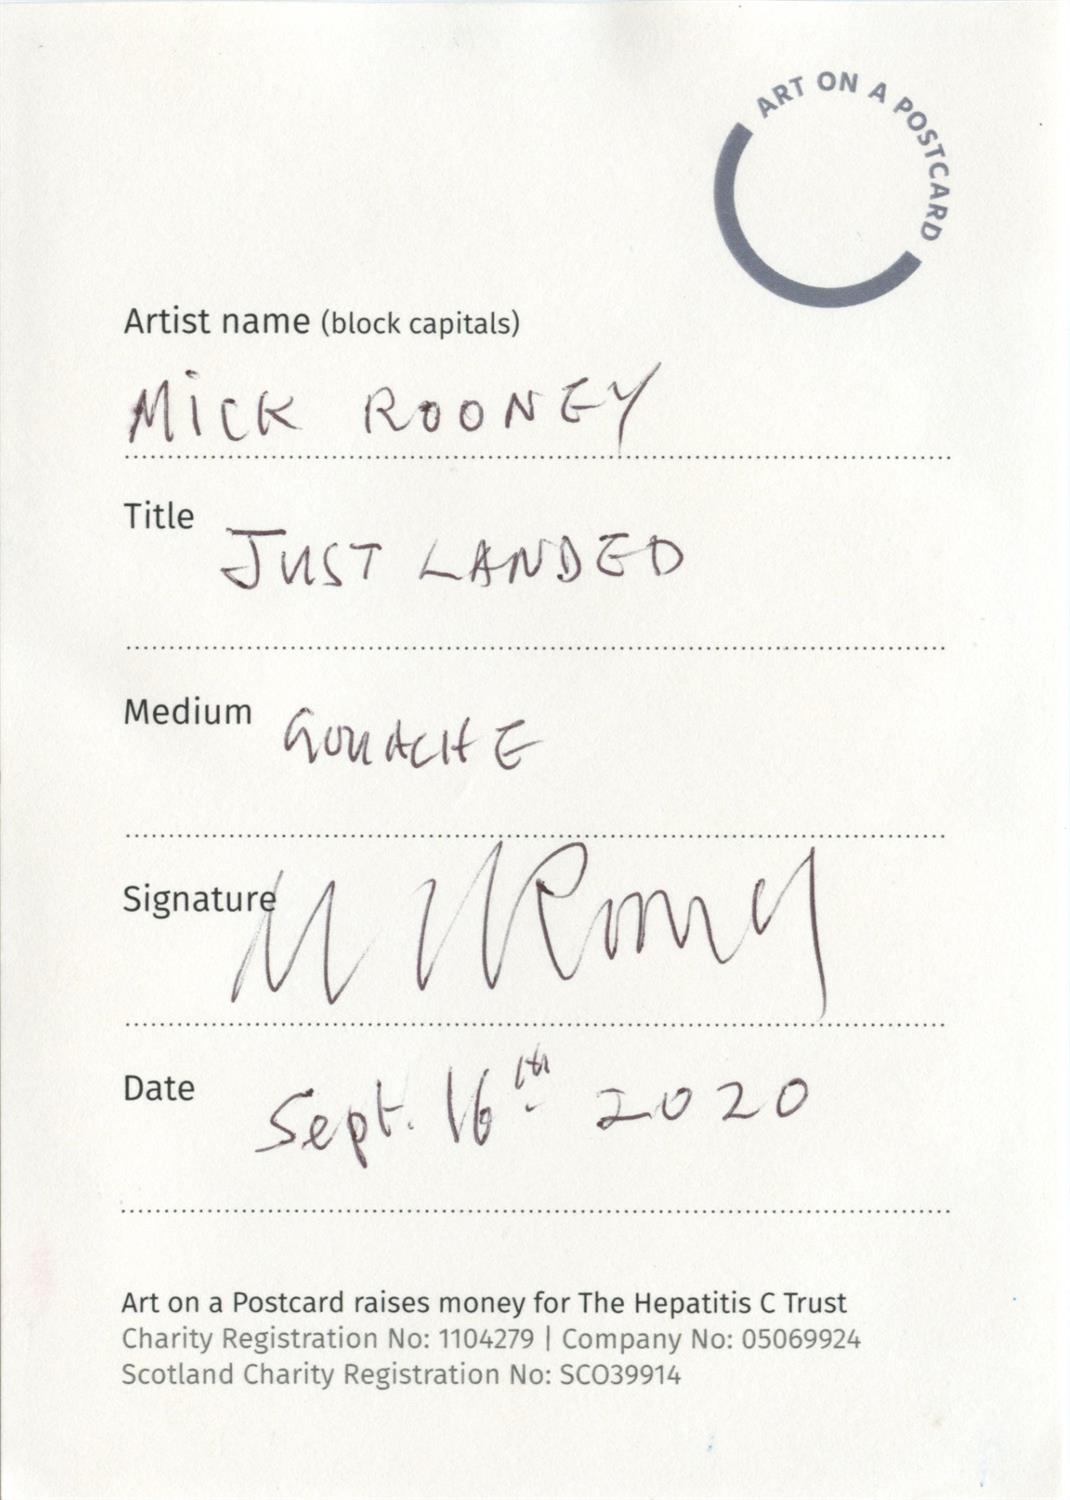 ART ON A POSTCARD
Artist name (block capitals)
MICK ROONEY
Title
JUST LANDED
Medium
GOUACHE
Signature
M Rooney
Date
Sept. 16th 2020
Art on a Postcard raises money for The Hepatitis C Trust
Charity Registration No: 1104279 | Company No: 05069924
Scotland Charity Registration No: SCO39914